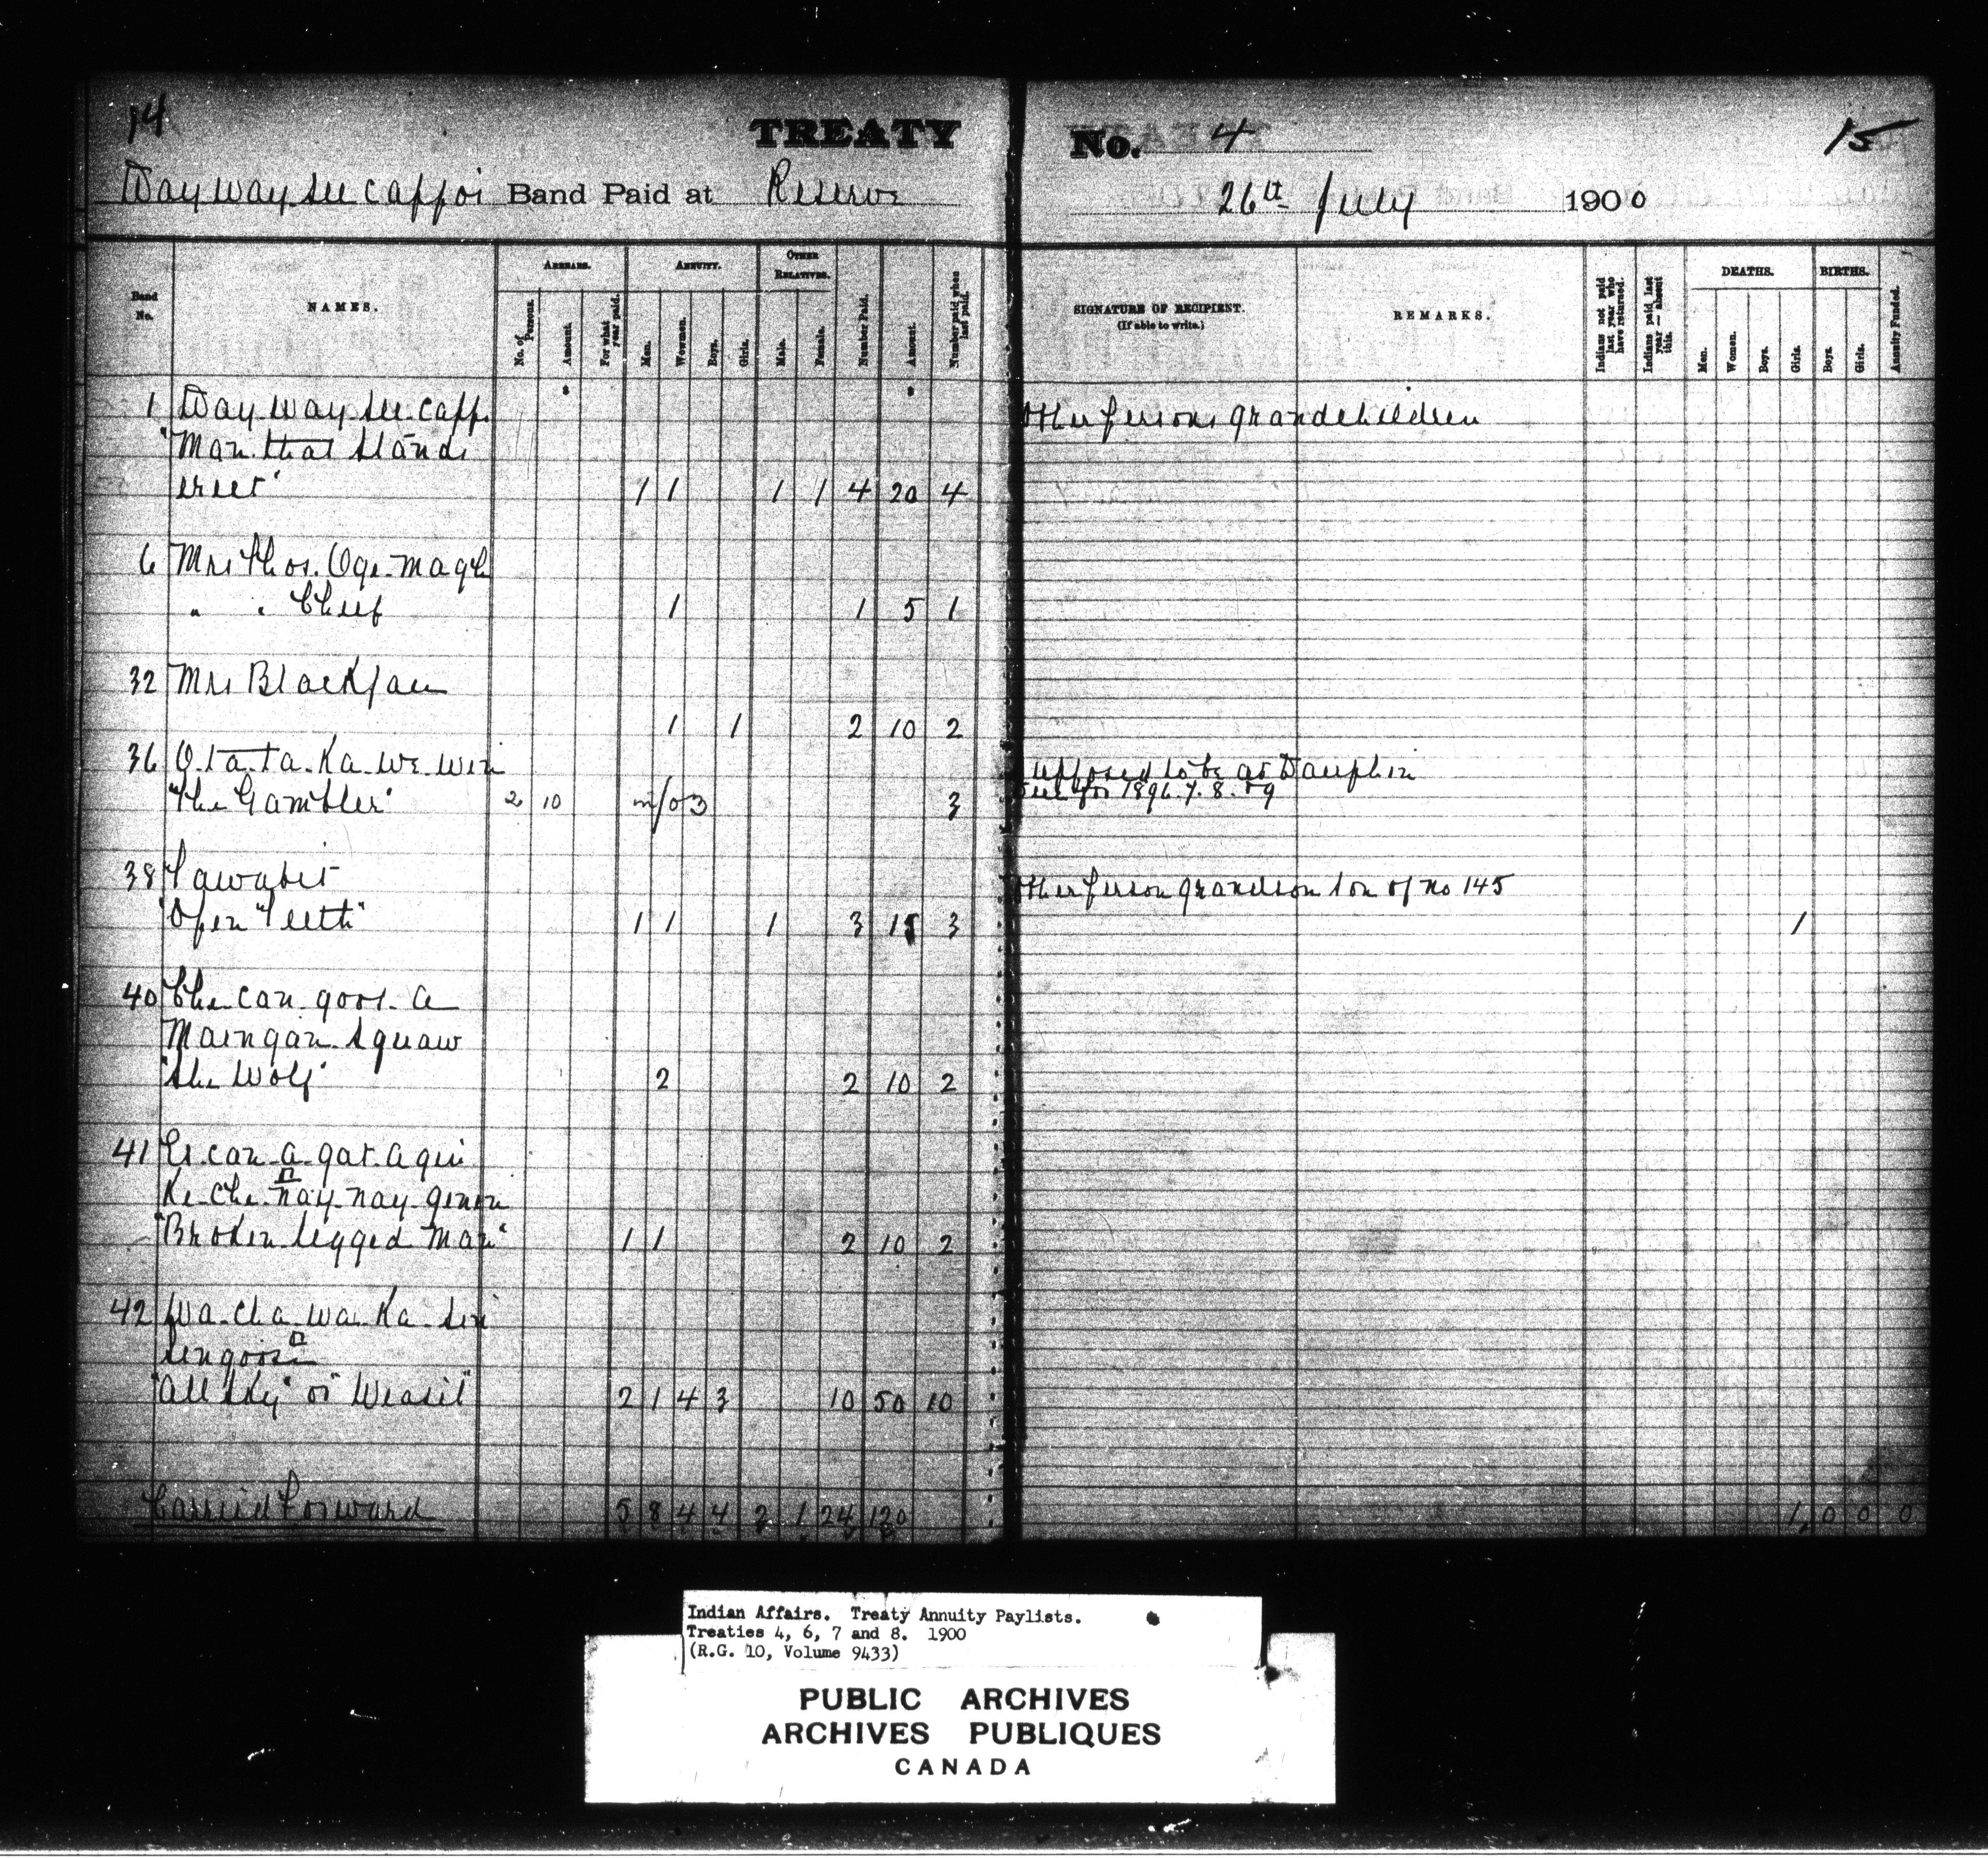 14
TREATY No. 4
15
Way way see cappoi Band Paid at Reserve
26th July 1900
Band No.
NAMES.
ARREARS.
No. of Persons.
Amount.
For what year paid.
ANNUITY.
Men.
Women.
Boys.
Girls.
OTHER RELATIVES.
Male.
Female.
Number Paid.
Amount.
Number paid when last paid.
SIGNATURE OF RECIPIENT.
(If able to write.)
REMARKS.
Indians not paid last year who have returned.
Indians paid last year — absent this.
DEATHS.
Men.
Women.
Boys.
Girls.
BIRTHS.
Boys.
Girls.
Annuity Funded.
1 Way way see capp. Other persons grandchildren
"Man that Stands
erect" 1 1 1 1 4 20 4
6 Mrs Thos. Oge-maqh
" " Chief 1 1 5 1
32 Mrs Blackface
1 1 2 10 2
36 O-ta-ta-Ka-we-win Supposed to be at Dauphin
"The Gambler" 2 10 m/o 3 3 1896.7.8.&9
38 Tawabit Other person grandson son of no 145
"Open Teeth" 1 1 1 3 15 3 1
40 Che-can-goos-a
Maingan-Squaw
"She Wolf" 2 2 10 2
41 Es-can-a-gat-a-gin
Ke-che-nay-nay-genon
"Broken legged Man" 1 1 2 10 2
42 Wa-cha-wa-Ka-sin
Sengoos
"All Sky" or "Weasil" 2 1 4 3 10 50 10
Carried Forward 5 8 4 4 2 1 24 120 1 0 0 0
Indian Affairs. Treaty Annuity Paylists.
Treaties 4, 6, 7 and 8. 1900
(R.G. 10, Volume 9433)
PUBLIC ARCHIVES
ARCHIVES PUBLIQUES
CANADA